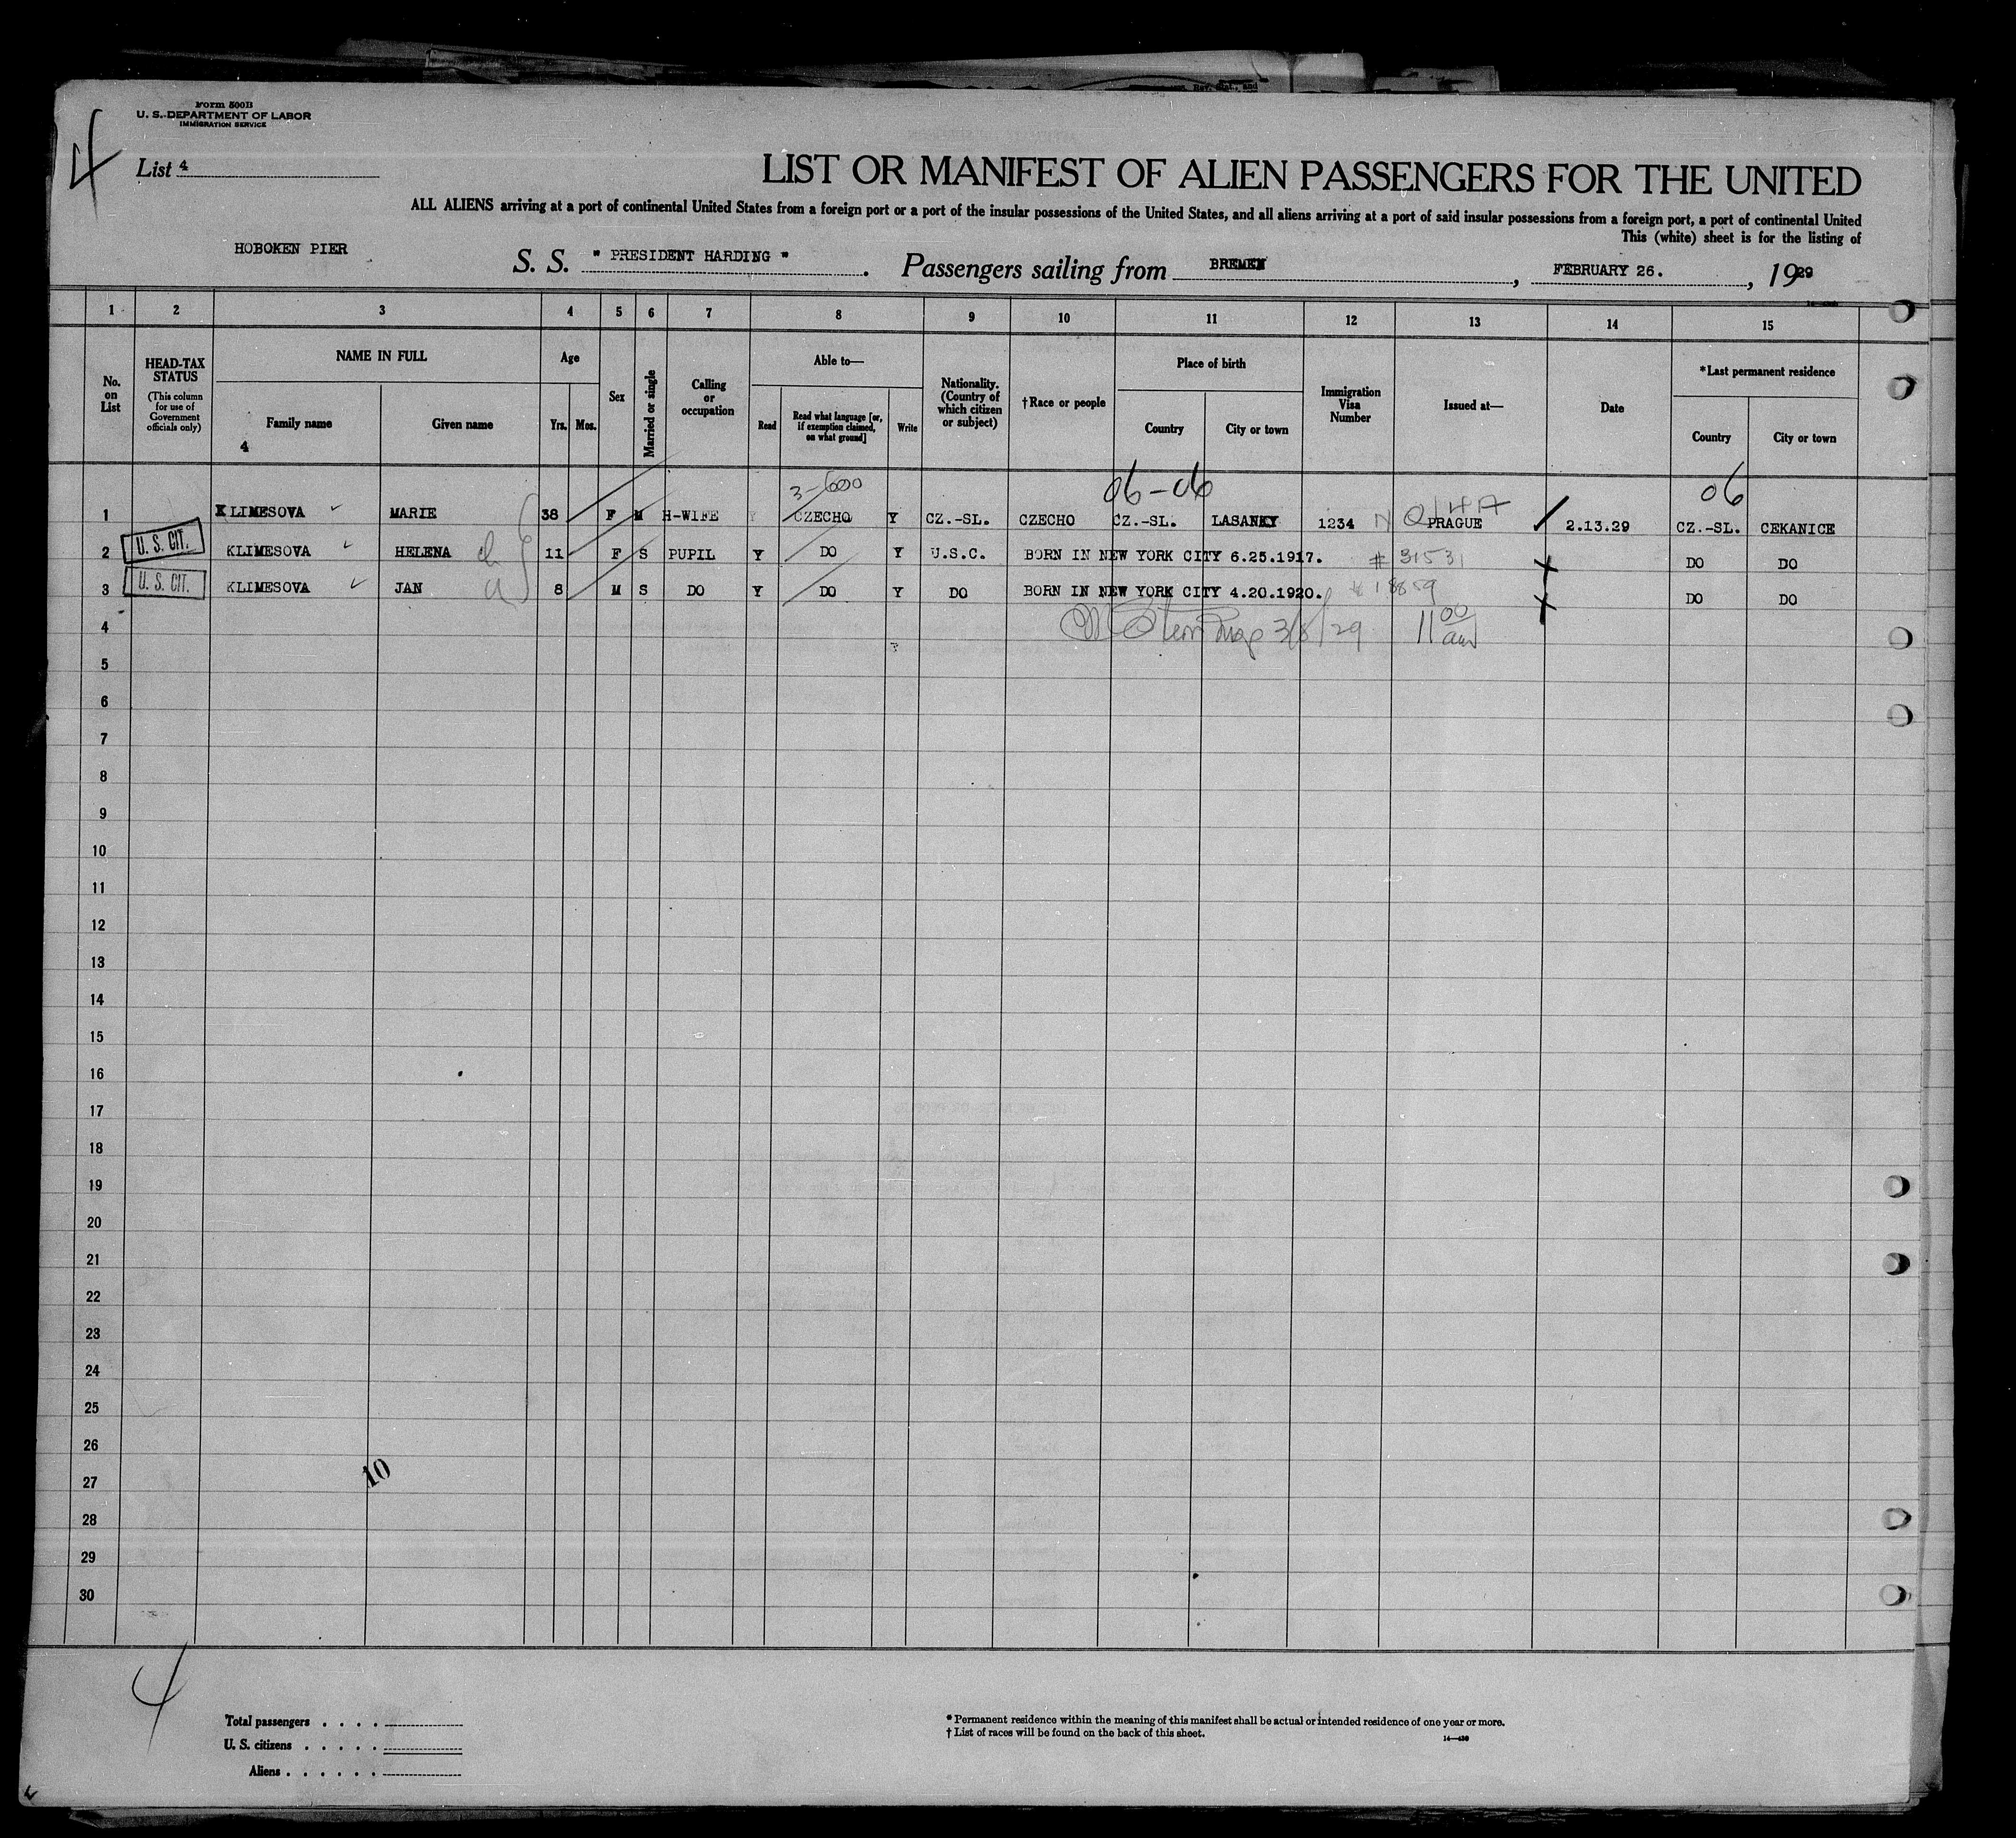 Form 500B
U. S. DEPARTMENT OF LABOR
IMMIGRATION SERVICE
4
List 4
LIST OR MANIFEST OF ALIEN PASSENGERS FOR THE UNITED
ALL ALIENS arriving at a port of continental United States from a foreign port or a port of the insular possessions of the United States, and all aliens arriving at a port of said insular possessions from a foreign port, a port of continental United
This (white) sheet is for the listing of
HOBOKEN PIER S. S. " PRESIDENT HARDING " . Passengers sailing from BREMEN , FEBRUARY 26. , 1929
1 2 3 4 5 6 7 8 9 10 11 12 13 14 15
No. on List
HEAD-TAX STATUS
(This column for use of Government officials only)
NAME IN FULL
Family name
Given name
4
Age
Yrs. Mos.
Sex
Married or single
Calling or occupation
Able to—
Read
Read what language [or, if exemption claimed, on what ground]
Write
Nationality. (Country of which citizen or subject)
†Race or people
Place of birth
Country
City or town
Immigration Visa Number
Issued at—
Date
*Last permanent residence
Country
City or town
3-600 06-06 06
1 KLIMESOVA MARIE 38 F M H-WIFE Y CZECHO Y CZ.-SL. CZECHO CZ.-SL. LASANKY 1234 PRAGUE 2.13.29 CZ.-SL. CEKANICE
2 U. S. CIT. KLIMESOVA HELENA 11 F S PUPIL Y DO Y U.S.C. BORN IN NEW YORK CITY 6.25.1917. # 31531 DO DO
3 U. S. CIT. KLIMESOVA JAN 8 M S DO Y DO Y DO BORN IN NEW YORK CITY 4.20.1920. # 18859 DO DO
4 3/8/29 11 00 am
5
6
7
8
9
10
11
12
13
14
15
16
17
18
19
20
21
22
23
24
25
26
10
27
28
29
30
4
Total passengers . . . .
U. S. citizens . . . . .
Aliens . . . . . .
* Permanent residence within the meaning of this manifest shall be actual or intended residence of one year or more.
† List of races will be found on the back of this sheet.
14—430